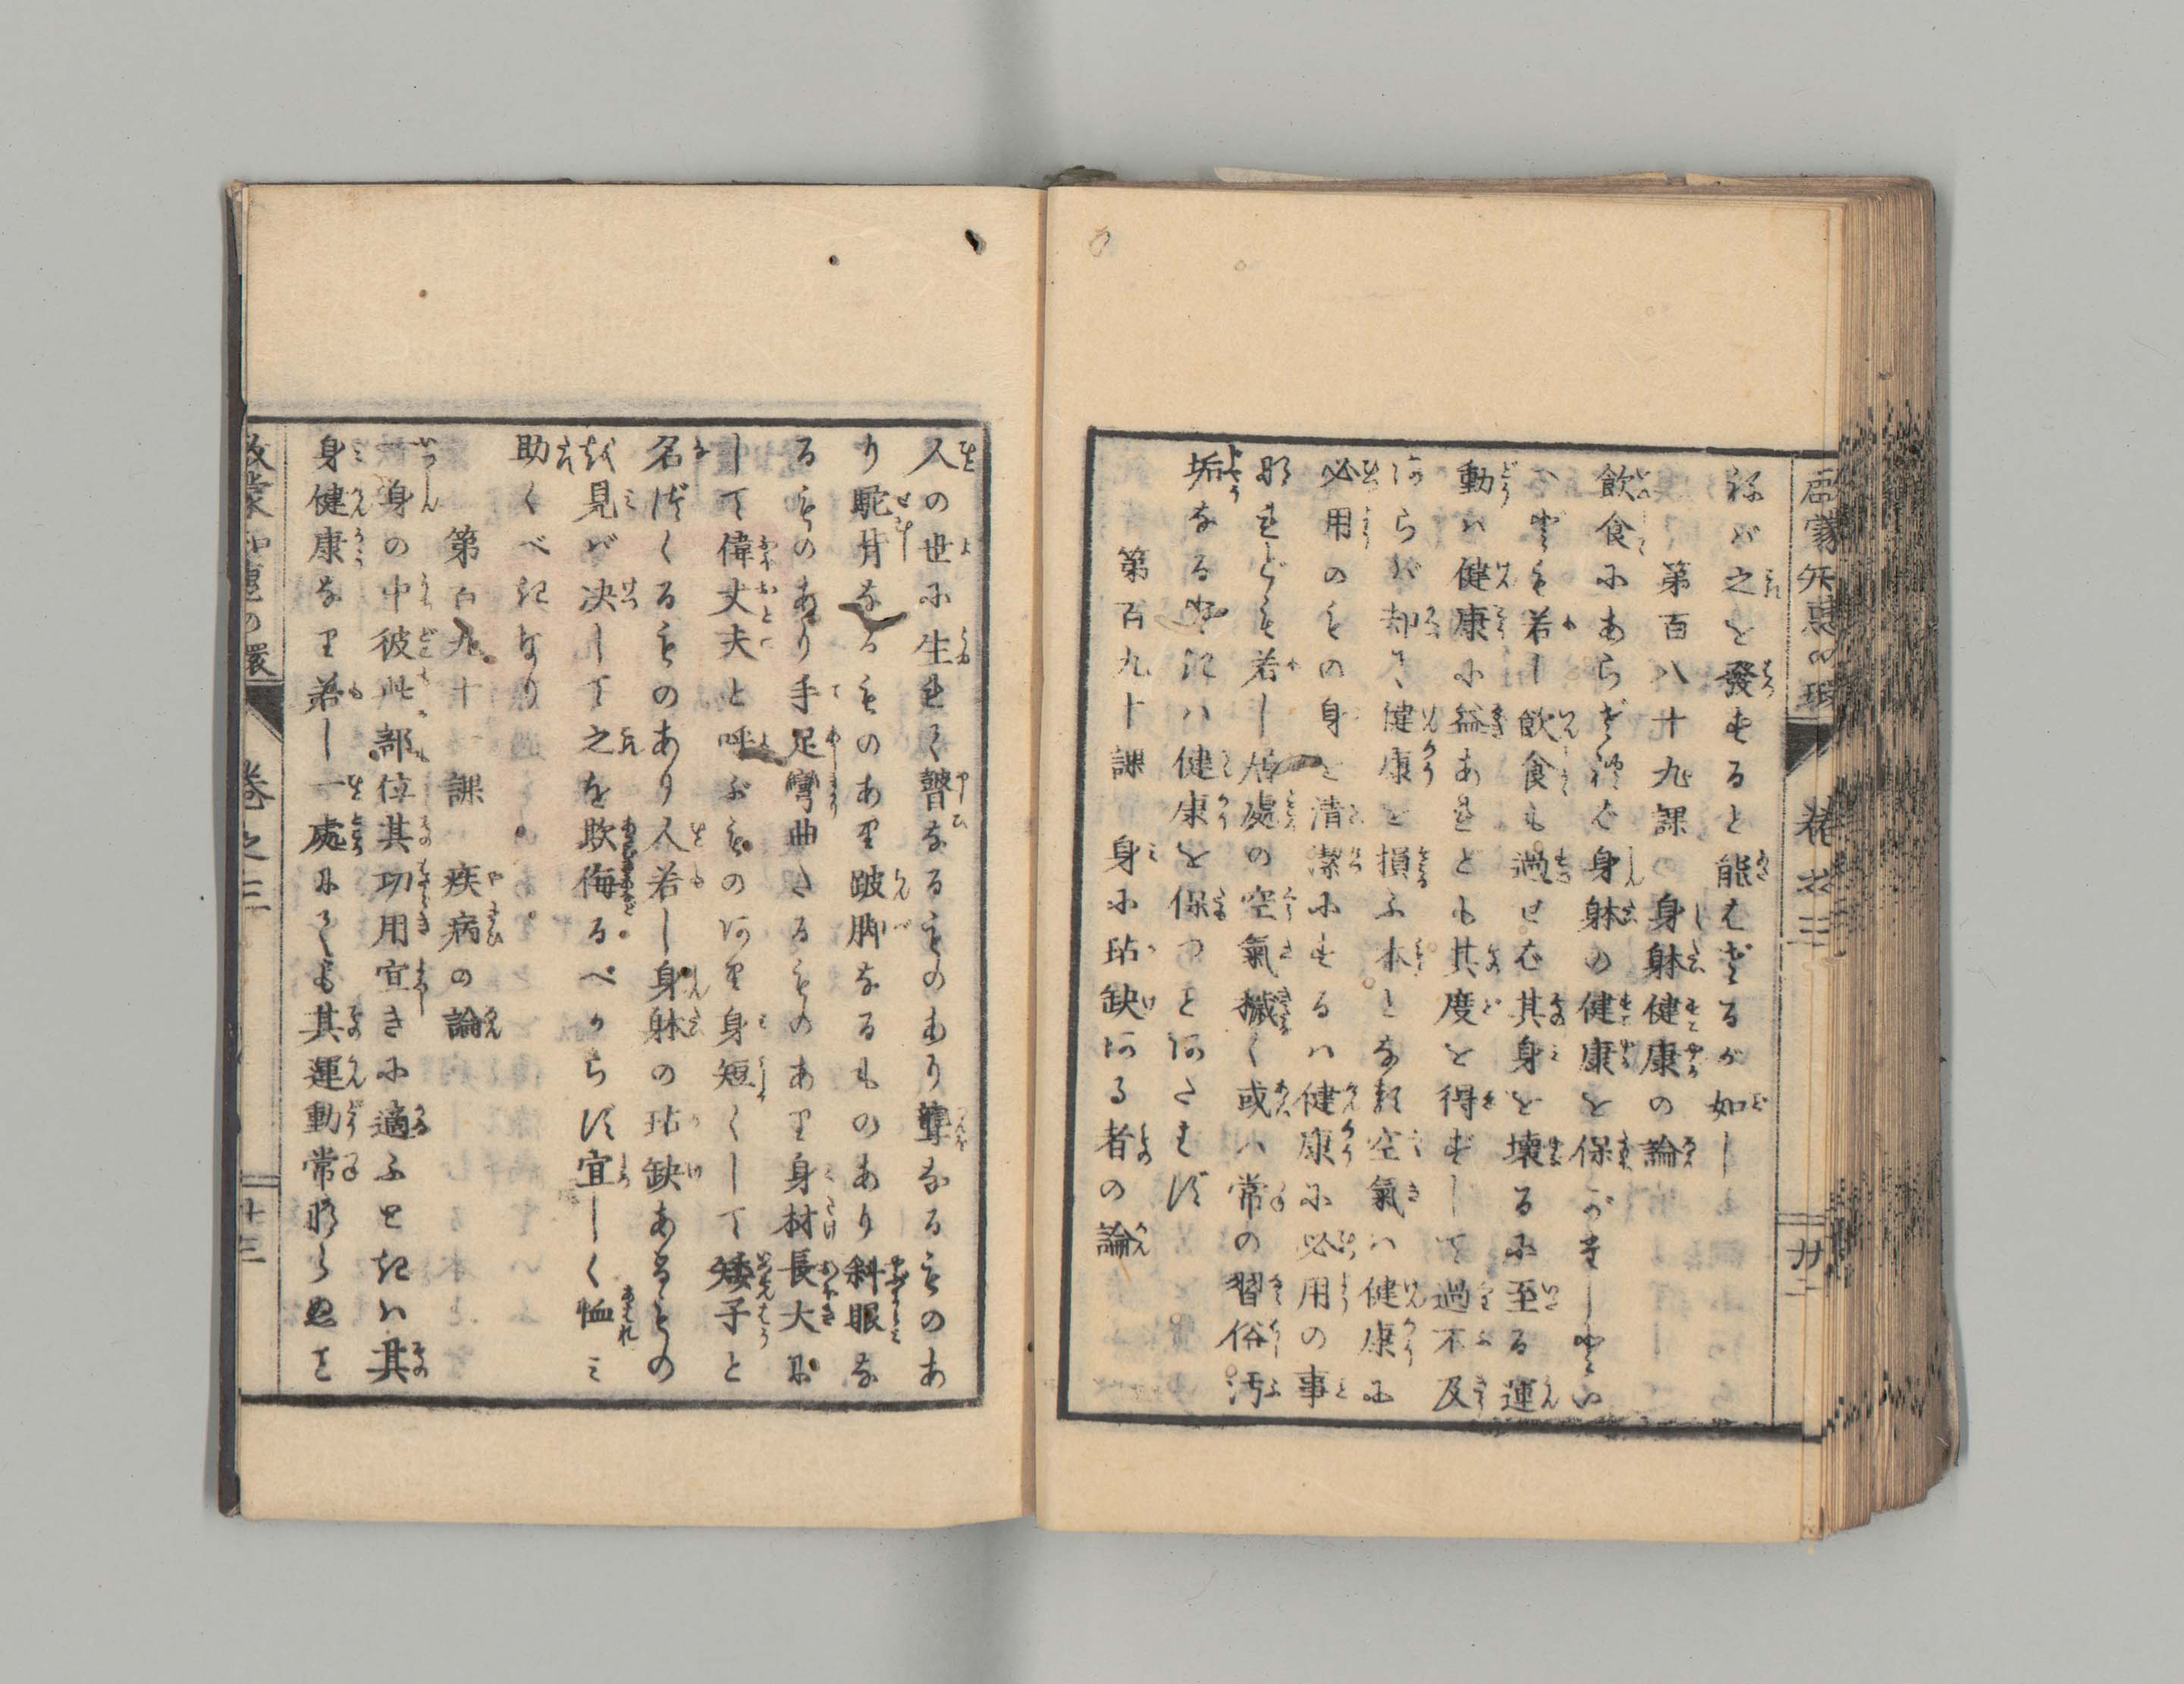 啓蒙知恵の環 巻之三 廿二
ねバ之を發すること能はざるが如し
第百八十九課 身躰健康の論
飲食にあらざれバ身躰の健康を保がたしといへ
ども若し飲食も過せば其身を壊るに至る運
動ハ健康に益あれども其度を得ずして過不及
あらバ却て健康を損ふ本となる空氣ハ健康に
必用のもの身を清潔にするハ健康に必用の事
なれども若し居處の空氣穢く或ハ常の習俗汚
垢なるときハ健康を保つことあたはず
第百九十課 身に玷缺ある者の論
人の世に生れて瞽なるものあり聾なるものあ
り駝背なるものあり跛脚なるものあり斜眼な
るものあり手足彎曲たるものあり身材長大に
して偉丈夫と呼ぶものあり身短くして矮子と
名づくるものあり人若し身躰の玷缺あるもの
を見バ决して之を欺侮るべからず宜しく恤ミ
助くべきなり
第百九十一課 疾病の論
一身の中彼此部位其功用宜きに適ふときハ其
身健康なり若し一處にても其運動常ならぬこと
啓蒙知恵の環 巻之三 廿三